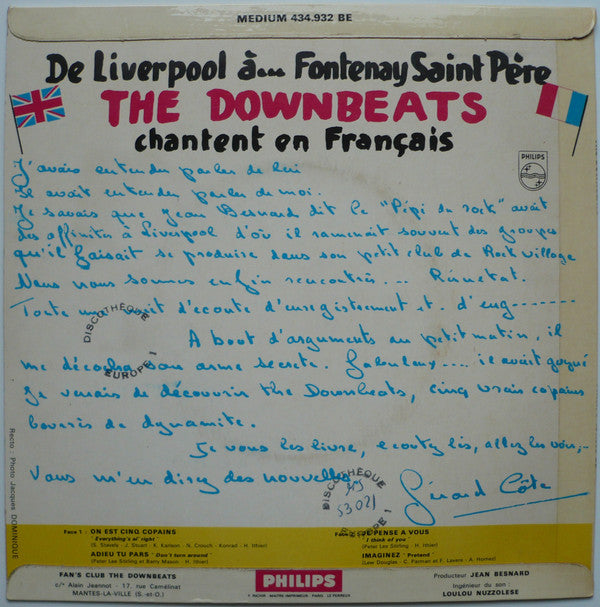 MEDIUM 434.932 BE
De Liverpool à... Fontenay Saint Père
THE DOWNBEATS
chantent en Français
PHILIPS
J'avais entendu parler de lui
Il avait entendu parler de moi.
Je savais que Jean Besnard dit le "Pépé du rock" avait
des affinités à Liverpool d'où il ramenait souvent des groupes
qu'il faisait se produire dans son petit club de Rock village
Nous nous sommes enfin rencontrés...
Toute une nuit d'écoute d'enregistrement et d'eng-------
A bout d'arguments au petit matin, il
me décocha son arme secrète. Fabuleux.... il avait gagné
Je venais de découvrir the Downbeats, cinq vrais copains
bourrés de dynamite.
Je vous les livre, écoutez les, allez les voir,...
Vous m'en direz des nouvelles
Gérard Côte
DISCOTHEQUE
EUROPE 1
DISCOTHEQUE
53021
EUROPE 1
Recto : Photo Jacques DOMINIQUE
Face 1 : ON EST CINQ COPAINS
"Everything's al' right"
(S. Stavely - J. Stuart - K. Karlson - N. Crouch - Konrad - H. Ithier)
ADIEU TU PARS "Don't turn around"
(Peter Lee Stirling et Barry Mason - H. Ithier)
JE PENSE A VOUS
"I think of you"
(Peter Lee Stirling - H. Ithier)
IMAGINEZ "Pretend"
(Lew Douglas - C. Parman et F. Lavere - A. Hornez)
FAN'S CLUB THE DOWNBEATS
c/° Alain Jeannot - 17, rue Camélinat
MANTES-LA-VILLE (S.-et-O.)
PHILIPS
Producteur JEAN BESNARD
Ingénieur du son :
LOULOU NUZZOLESE